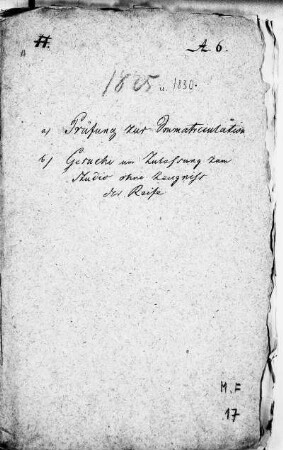 A 6.
1825 u. 1830.
a) Prüfung zur Immatriculation
b) Gesuche um Zulassung zum
Studio ohne Zeugniß
der Reife
M.F
17